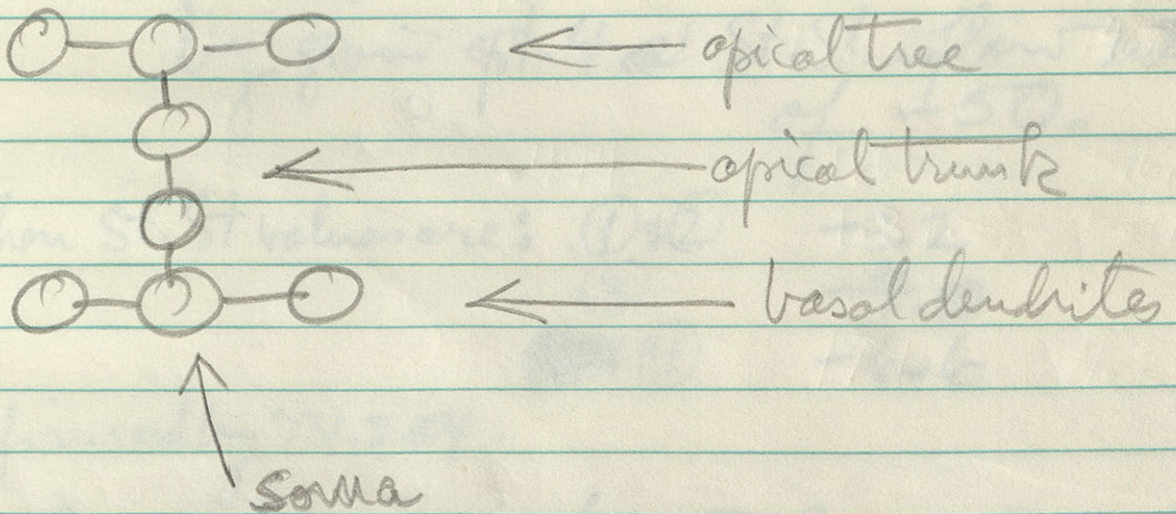 apical tree
apical trunk
basal dendrites
soma